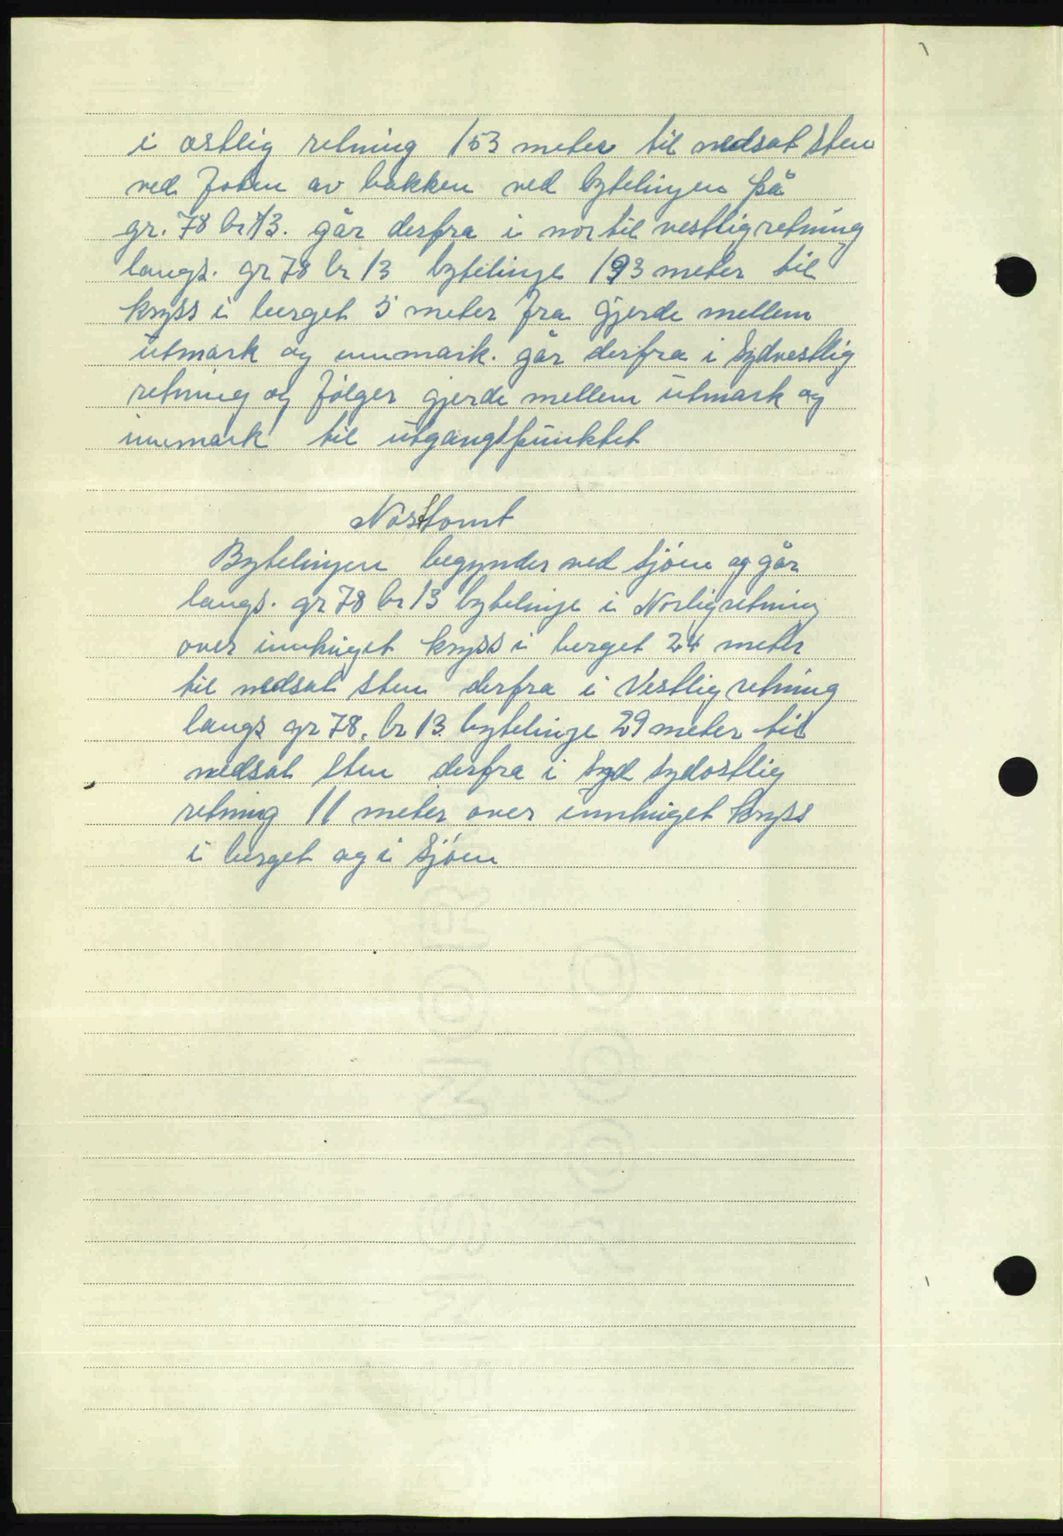 i østlig retning 153 meter til nedsat sten
ved foten av bakken ved bytelingen på
gr. 78 br 13. går derfra i nor til vestlig retning
langs. gr 78 br 13 bytelinge 193 meter til
kryss i berget 5 meter fra gjerde mellem
utmark og innmark. går derfra i Sydvestlig
retning og følger gjerde mellem utmark og
innmark til utgangspunktet
Nøsttomt
Bytelingen begynder ved Sjøen og går
langs. gr 78 br 13 bytelinje i Norlig retning
over innhuget kryss i berget 24 meter
til nedsat sten derfra i Vestlig retning
langs gr 78. br 13. bytelinge 29 meter til
nedsat sten derfra i syd sydøstlig
retning 11 meter over innhuget kryss
i berget og i Sjøen